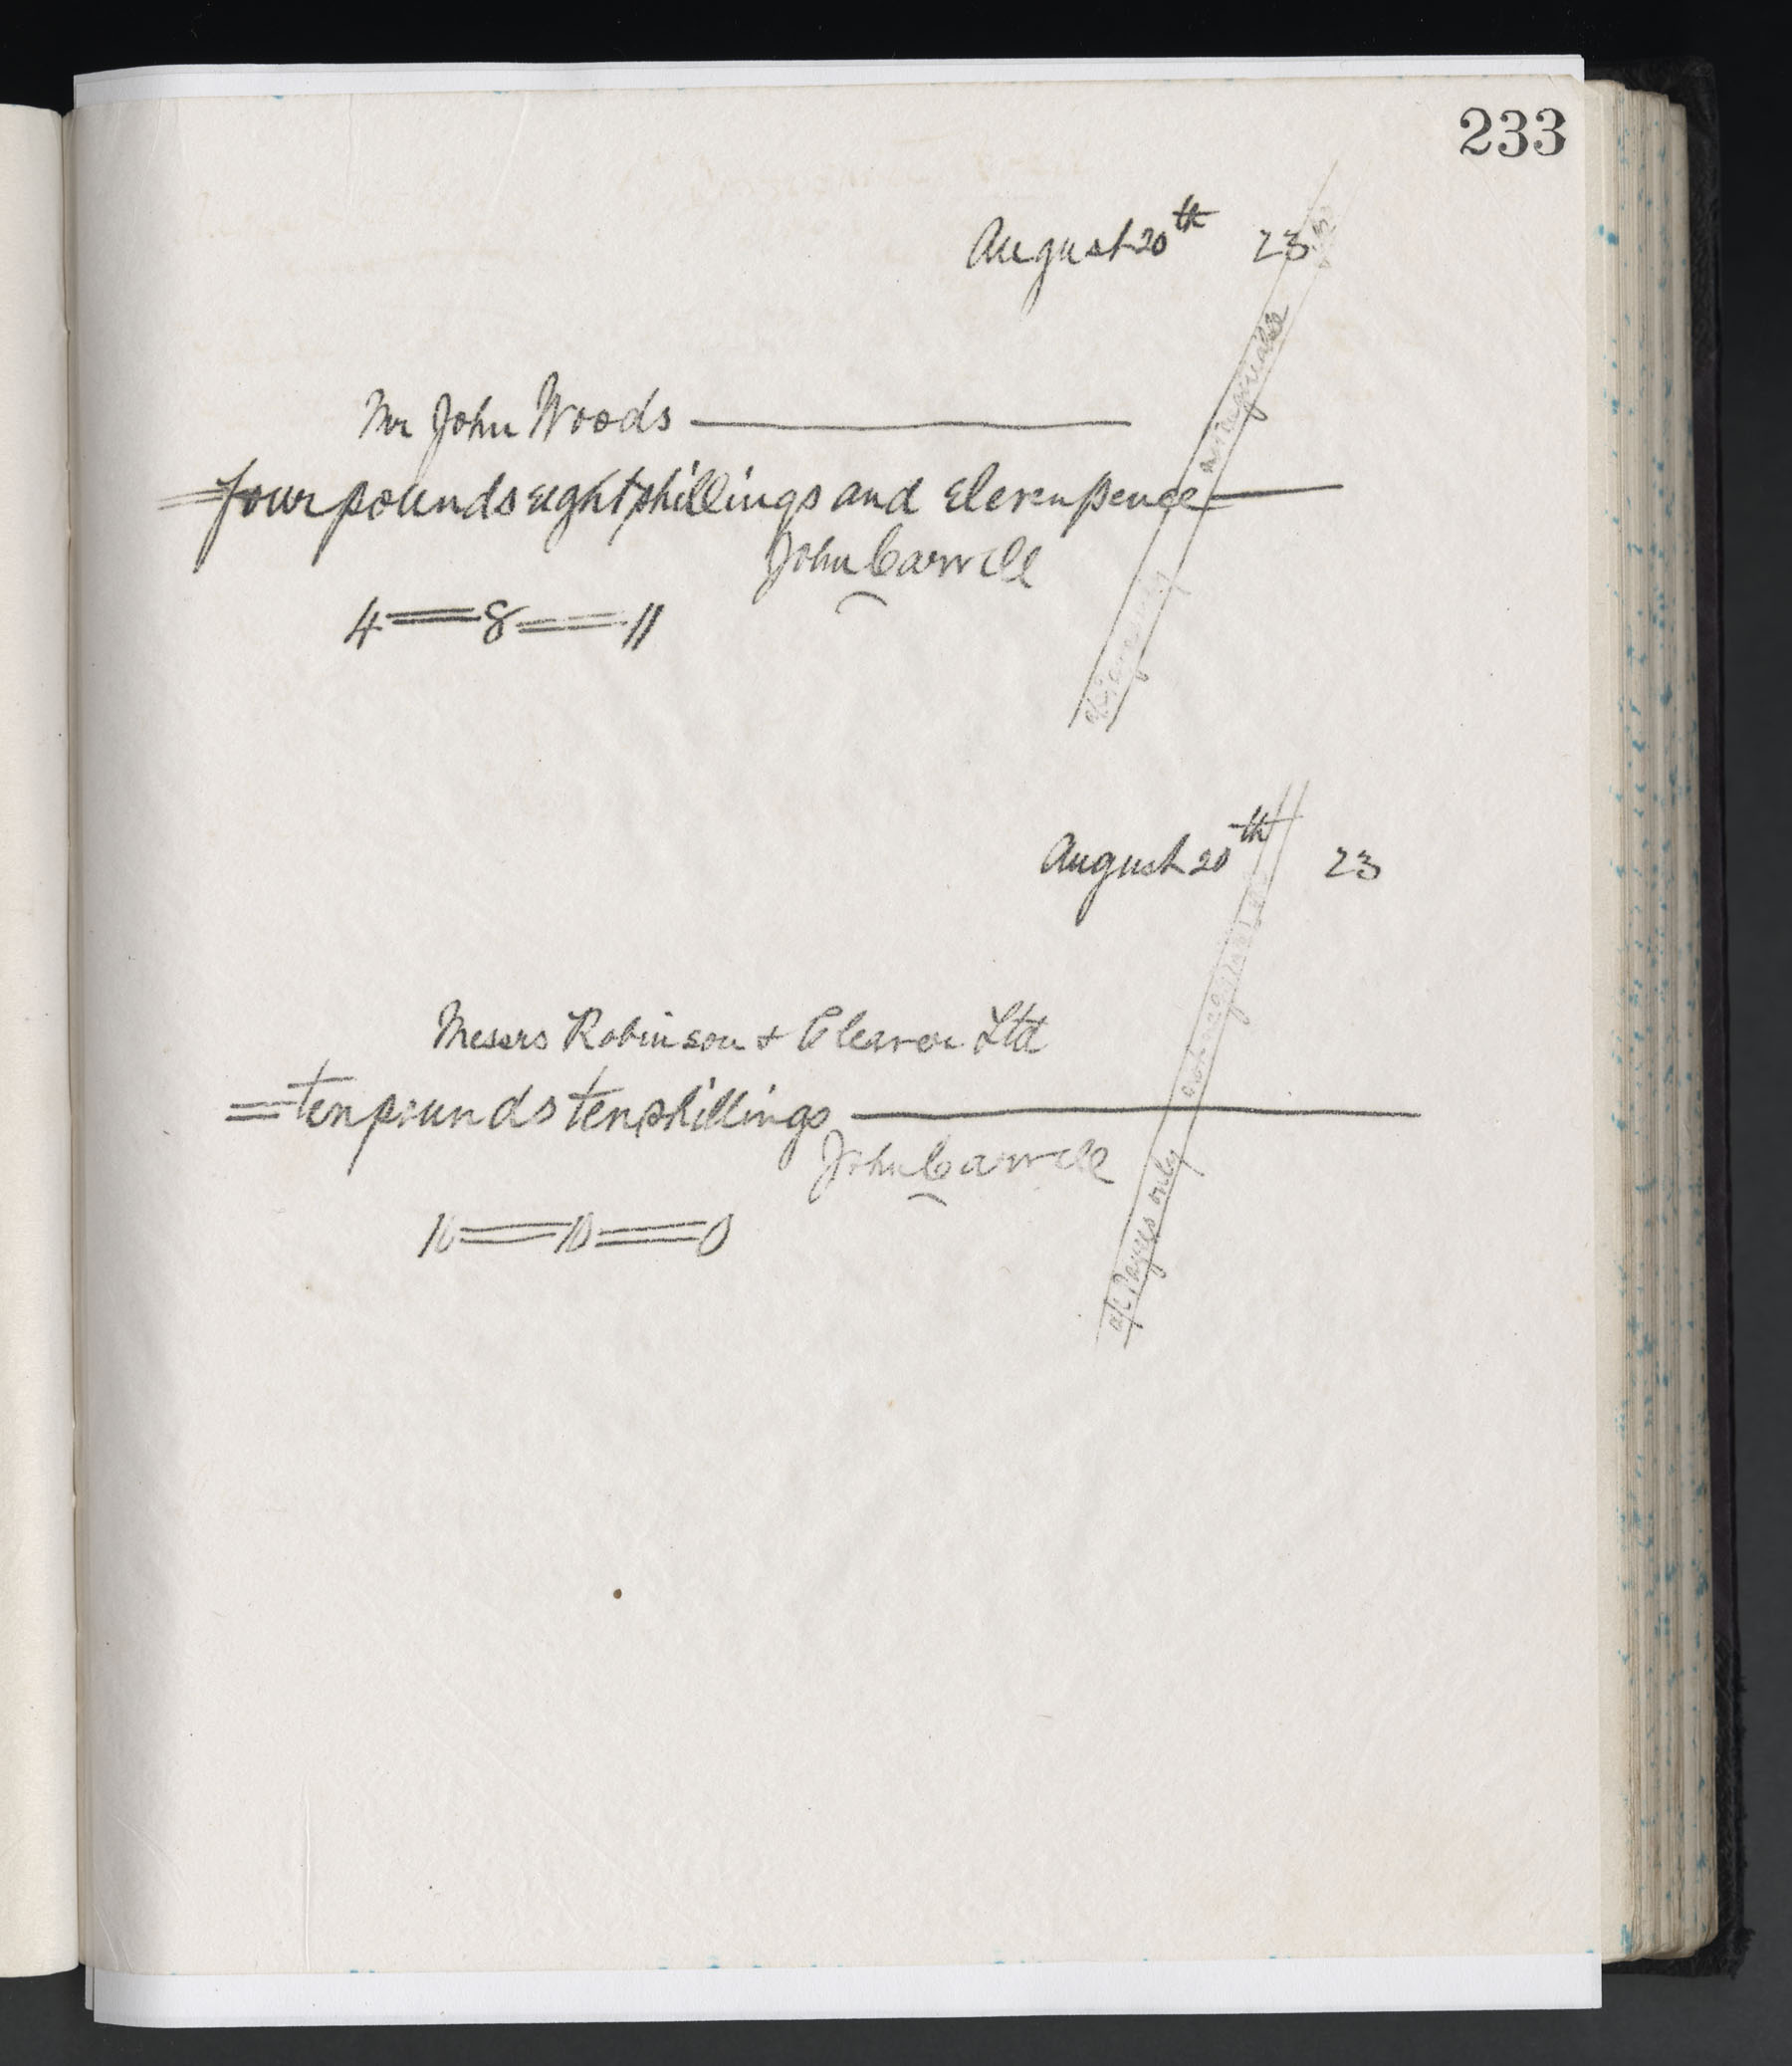 233
August 20th 23
Mr John Woods
four pounds eight shillings and eleven pence
John Carvill
4 = 8 = 11
not negotiable
August 20th 23
Messrs Robinson + Cleaver Ltd
= ten pounds ten shillings
John Carvill
10 = 10 = 0
not negotiable
a/c Payees only